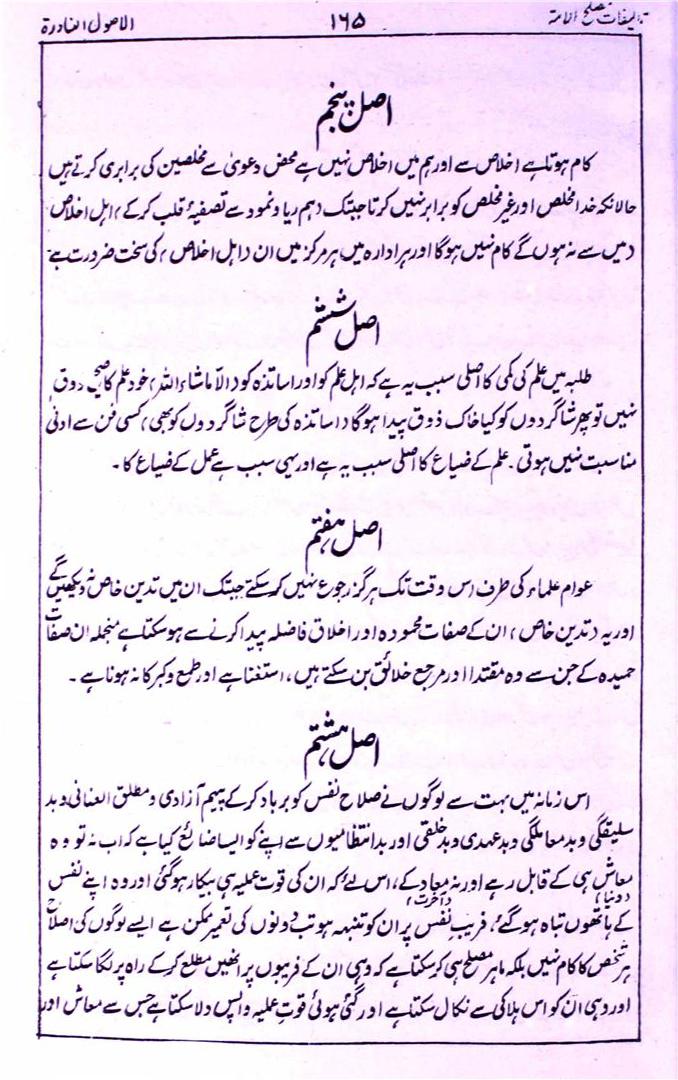 تالیفات مصلح الامۃ ۱۶۵ الاصول النادرۃ
اصل پنجم
کام ہوتا ہے اخلاص سے اور ہم میں اخلاص نہیں ہے محض دعویٰ سے مخلصین کی برابری کرتے ہیں
حالانکہ خدا مخلص اور غیر مخلص کو برابر نہیں کرتا جبتک (ہم ریا و نمود سے تصفیۂ قلب کر کے) اہل اخلاص
(میں سے نہ ہوں گے کام نہیں ہوگا اور ہر ادارہ میں ہر مرکز میں ان (اہل اخلاص) کی سخت ضرورت ہے
اصل ششم
طلبہ میں علم کی کمی کا اصلی سبب یہ ہے کہ اہل علم کو اور اساتذہ کو (الا ماشاء اللہ) خود علم کا صحیح ذوق
نہیں تو پھر شاگردوں کو کیا خاک ذوق پیدا ہوگا (اساتذہ کی طرح شاگردوں کو بھی) کسی فن سے ادنیٰ
مناسبت نہیں ہوتی۔ علم کے ضیاع کا اصلی سبب یہ ہے اور یہی سبب ہے عمل کے ضیاع کا۔
اصل ہفتم
عوام علماء کی طرف اس وقت تک ہرگز رجوع نہیں کر سکتے جبتک ان میں تدین خاص نہ دیکھیں گے
اور یہ (تدین خاص) ان کے صفات محمودہ اور اخلاق فاضلہ پیدا کرنے سے ہو سکتا ہے منجملہ ان صفات
حمیدہ کے جن سے وہ مقتدا اور مرجع خلائق بن سکتے ہیں، استغنا ہے اور طمع و کبر کا نہ ہونا ہے۔
اصل ہشتم
اس زمانہ میں بہت سے لوگوں نے صلاح نفس کو برباد کر کے پیہم آزادی و مطلق العنانی و بد
سلیقگی و بد معاملگی و بد عہدی و بد خلقی اور بد انتظامیوں سے اپنے کو ایسا ضائع کیا ہے کہ اب نہ تو وہ
معاش (دنیا) ہی کے قابل رہے اور نہ معاد (آخرت) کے، اس لئے کہ ان کی قوت علیہ ہی بیکار ہوگئی اور وہ اپنے نفس
کے ہاتھوں تباہ ہو گئے، فریب نفس پر ان کو تنبہ ہو تب دونوں کی تعمیر ممکن ہے ایسے لوگوں کی اصلاح
ہر شخص کا کام نہیں بلکہ ماہر مصلح ہی کر سکتا ہے کہ وہی ان کے فریبوں پر انھیں مطلع کر کے راہ پر لگا سکتا ہے
اور وہی ان کو اس ہلاکی سے نکال سکتا ہے اور گئی ہوئی قوت علیہ واپس دلا سکتا ہے جس سے معاش اور